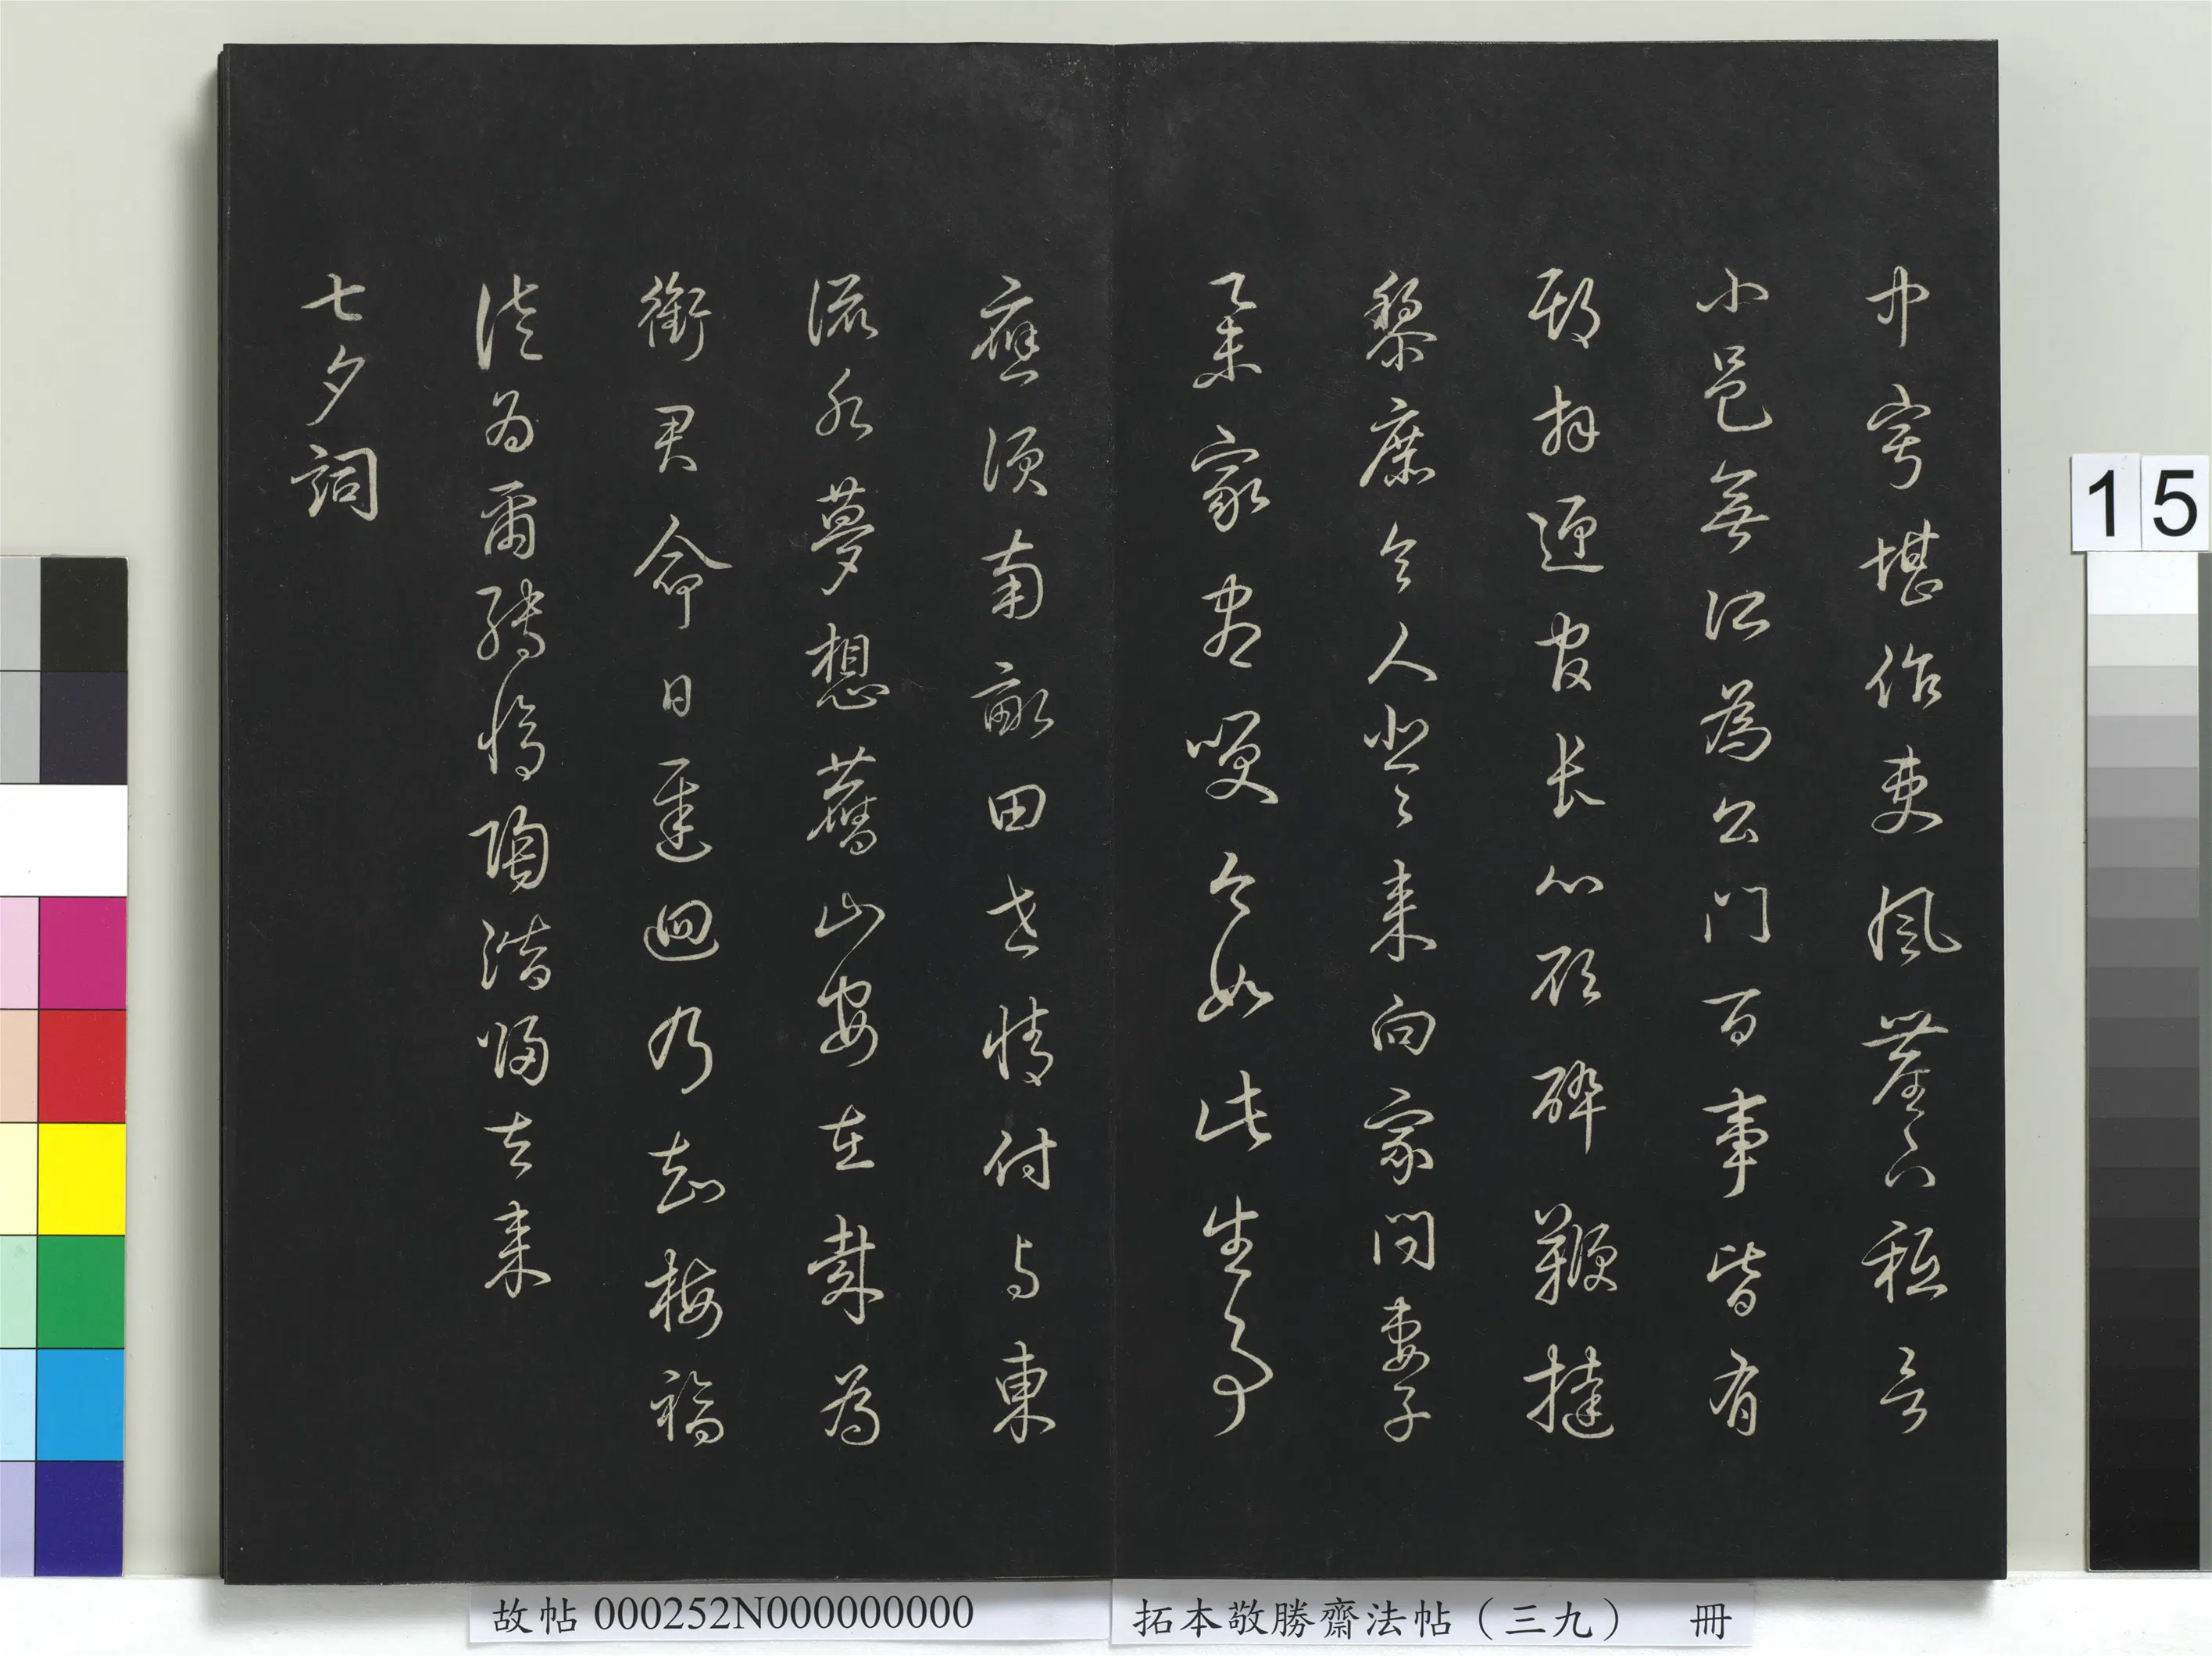 中寧堪作吏風塵下秖言
小邑無所為公門百事皆有
期拜迎官長心欲碎鞭撻
黎庶令人悲〻來向家問妻子
舉家盡咲今如此生事
應須南畝田世情付与東
流水夢想舊山安在哉為
銜君命日遲迴乃知梅福
徒為爾轉憶陶潛歸去來
七夕詞
15
故帖 000252N000000000
拓本敬勝齋法帖（三九） 冊